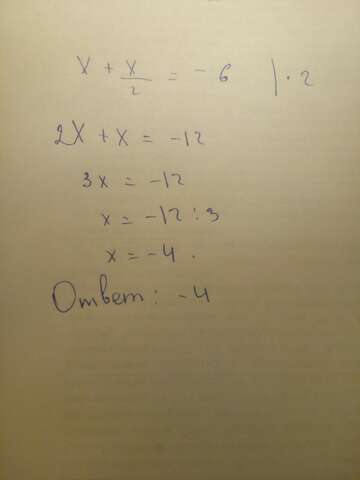 x + x/2 = -6 | · 2
2x + x = -12
3x = -12
x = -12 : 3
x = -4 .
Ответ: -4